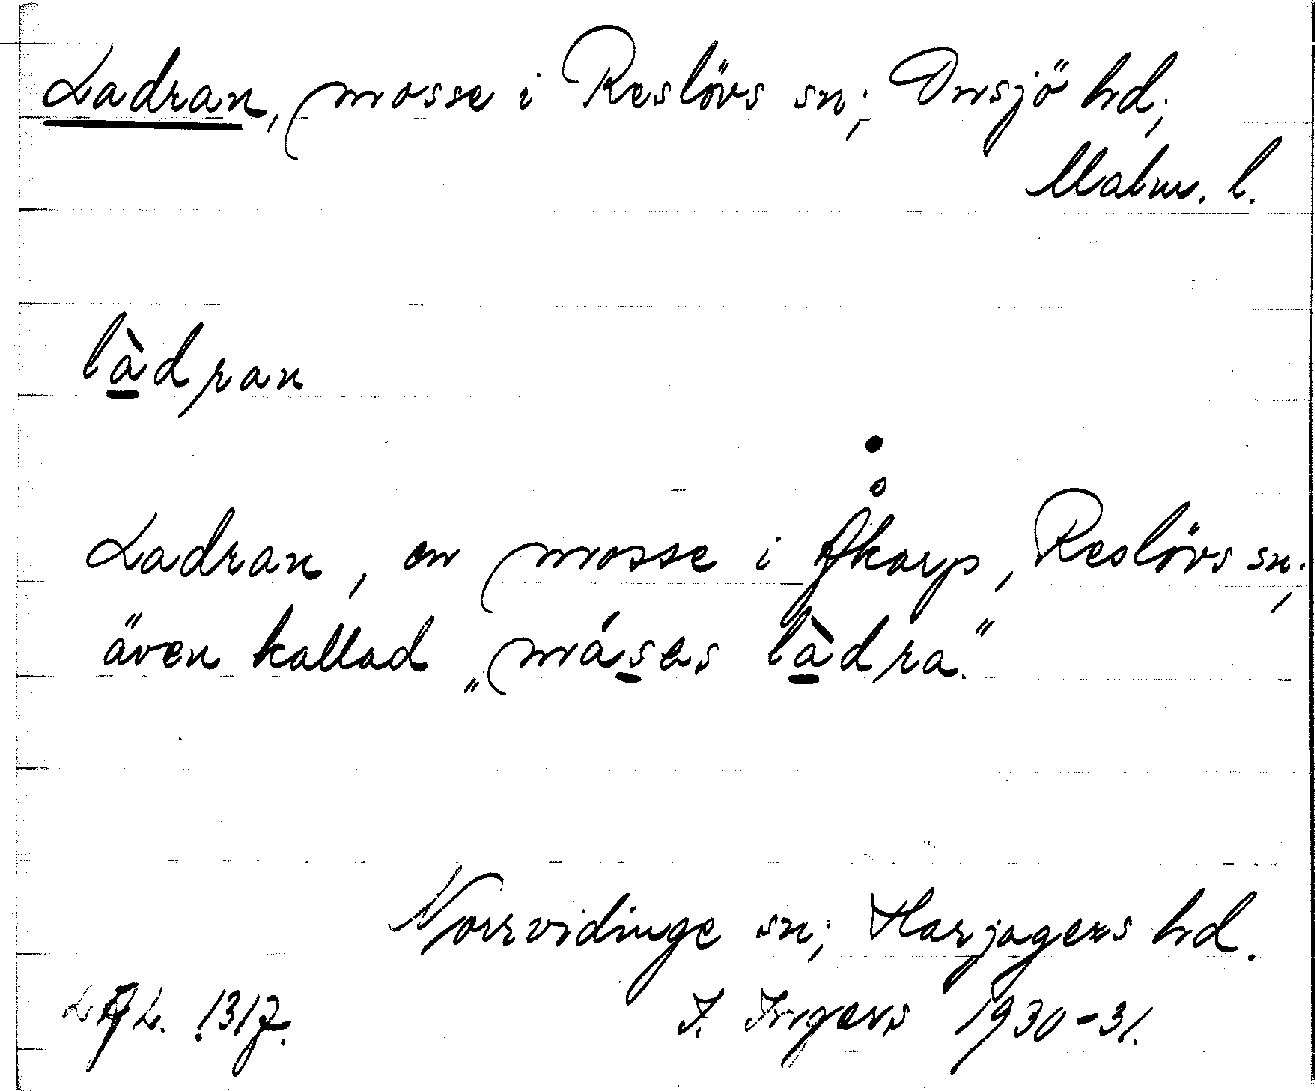 Ladran, mosse i Reslövs sn; Onsjö hd;
Malm. l.
làdran
Ladran, en mosse i Åkarp, Reslövs sn;
även kallad „måses làdra.”
Norrvidinge sn; Harjagers hd.
1317. I. Ingers 1930-31.